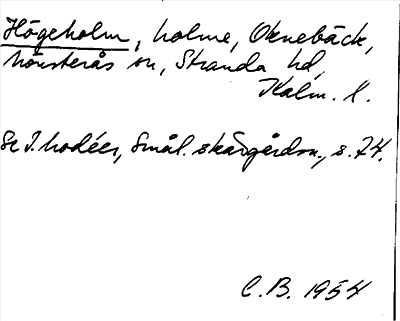 Högeholm, holme, Oknebäck,
Mönsterås sn, Stranda hd,
Kalm. l.
Se I. Modéer, Smål. skärgårdsn., s. 74.
C.B. 1954